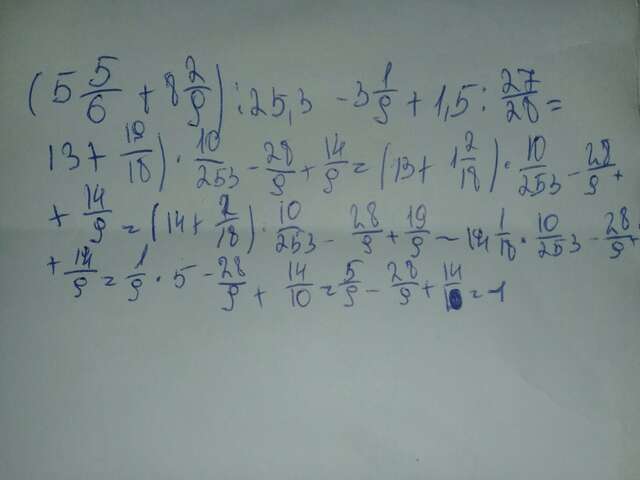 (5 5/6 + 8 2/9) : 25,3 - 3 1/9 + 1,5 : 27/28 =
13 + 19/18) · 10/253 - 28/9 + 14/9 = (13 + 1 2/18) · 10/253 - 28/9 +
+ 14/9 = (14 + 2/18) · 10/253 - 28/9 + 19/9 - 14 1/18 · 10/253 - 28/9 +
+ 14/9 = 1/9 · 5 - 28/9 + 14/10 = 5/9 - 28/9 + 14/10 = -1